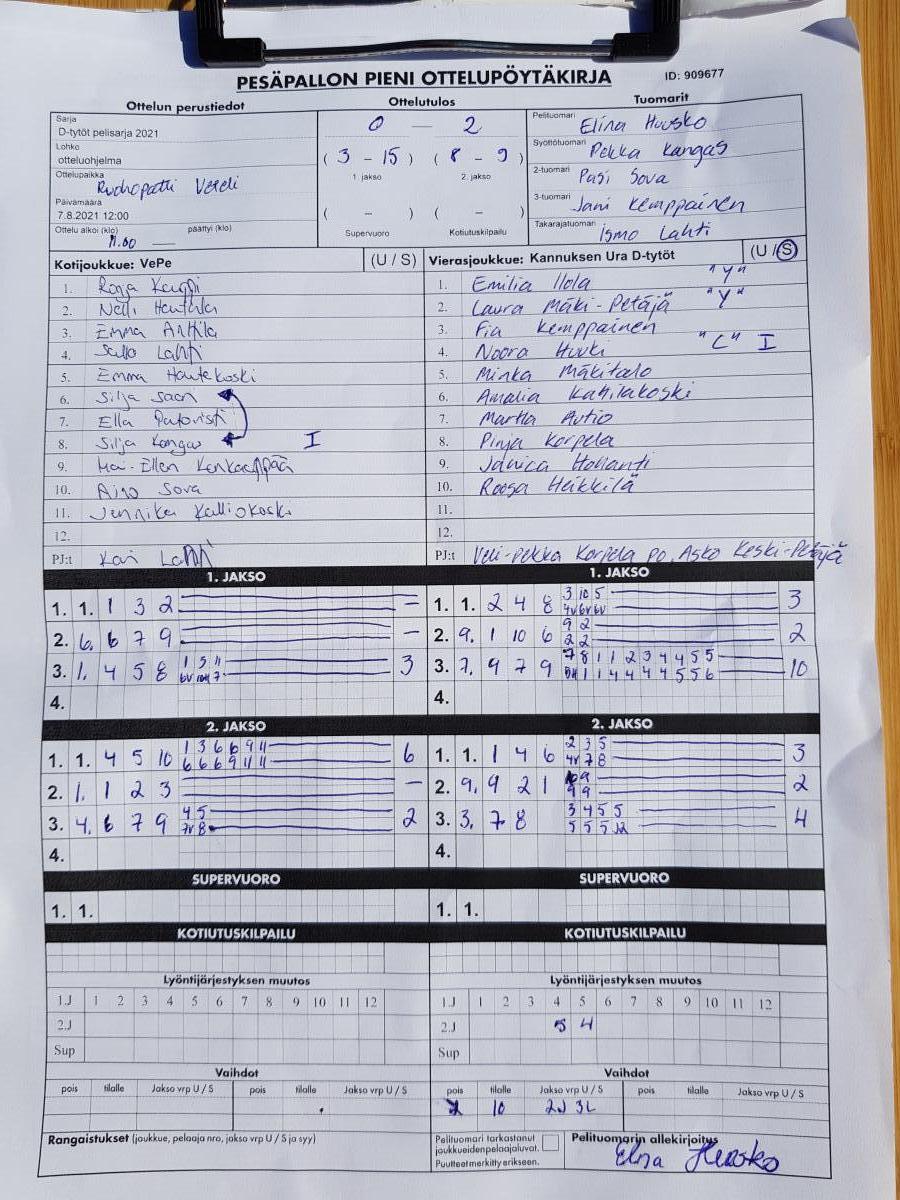 PESÄPALLON PIENI OTTELUPÖYTÄKIRJA ID: 909677
Ottelun perustiedot Ottelutulos Tuomarit
Sarja
D-tytöt pelisarja 2021
Lohko
otteluohjelma
Ottelupaikka
Päivämäärä
7.8.2021 12:00
Ottelu alkoi (klo) päättyi (klo)
0 — 2
( 3 - 15 ) ( 8 - 9 )
1. jakso 2. jakso
( - ) ( - )
Supervuoro Kotiutuskilpailu
Pelituomari Elina Huusko
Syöttötuomari Pekka Kangas
2-tuomari Pasi Sova
3-tuomari Jani Kemppainen
Takarajatuomari Ismo Lahti
Kotijoukkue: VePe (U / S) Vierasjoukkue: Kannuksen Ura D-tytöt (U / S)
1. 1. Emilia Ilola "Y"
2. Nelli 2. Laura Mäki-Petäjä "Y"
3. Emma Anttila 3. Fia Kemppainen
4. Salla Lahti 4. Noora Huuki "C" I
5. Emma Hautekoski 5. Minka Mäkitalo
6. Silja Saari 6. Amalia Kattilakoski
7. Ella 7. Martta Autio
8. Silja Kangas I 8. Pinja Korpela
9. 9. Janica Hollanti
10. Aino Sova 10. Roosa Heikkilä
11. Jennika Kalliokoski 11.
12. 12.
PJ:t Kari Lahti PJ:t Veli-Pekka Korpela po, Asko Keski-Petäjä
1. JAKSO 1. JAKSO
1. 1. 1 3 2 — 1. 1. 2 4 8 3 10 5 3
2. 6. 6 7 9 — 2. 9. 1 10 6 9 2 2
2 2
3. 1. 4 5 8 1 5 11 3 3. 7. 9 7 9 7 8 1 1 2 3 4 4 5 5 10
1 1 4 4 4 4 5 5 6
4. 4.
2. JAKSO 2. JAKSO
1. 1. 4 5 10 1 3 6 6 9 11 6 1. 1. 1 4 6 2 3 5 3
6 6 6 9 11 11 4v 7 8
2. 1. 1 2 3 — 2. 9. 9 2 1 2
9 9
3. 4. 6 7 9 4 5 2 3. 3. 7 8 3 4 5 5 4
7v 8 5 5 5
4. 4.
SUPERVUORO SUPERVUORO
1. 1. 1. 1.
KOTIUTUSKILPAILU KOTIUTUSKILPAILU
Lyöntijärjestyksen muutos Lyöntijärjestyksen muutos
1.J 1 2 3 4 5 6 7 8 9 10 11 12 1.J 1 2 3 4 5 6 7 8 9 10 11 12
2.J 2.J 5 4
Sup Sup
Vaihdot Vaihdot
pois tilalle Jakso vrp U / S pois tilalle Jakso vrp U / S pois tilalle Jakso vrp U / S pois tilalle Jakso vrp U / S
10 2J 3L
Rangaistukset (joukkue, pelaaja nro, jakso vrp U / S ja syy)
Pelituomari tarkastanut
joukkueiden pelaajaluvat.
Puutteet merkitty erikseen.
Pelituomarin allekirjoitus
Elina Huusko